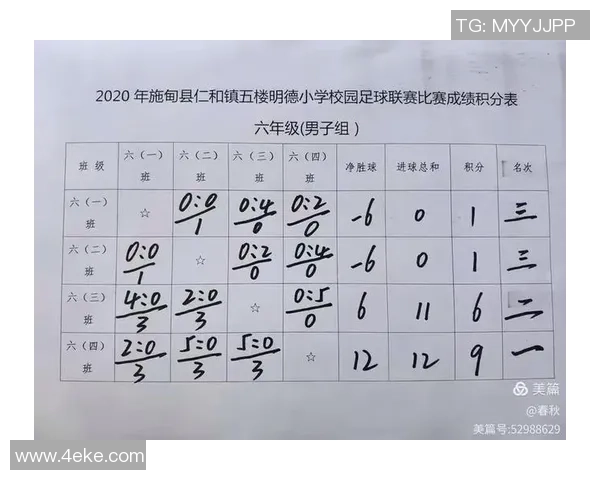 TG: MYYJJPP
2020 年施甸县仁和镇五楼明德小学校园足球联赛比赛成绩积分表
六年级(男子组)
班级 六（一）班 六（二）班 六（三）班 六（四）班 净胜球 进球总和 积分 名次
六（一）班 ☆ 0:0/1 0:4/0 0:2/0 -6 0 1 三
六（二）班 0:0/1 ☆ 0:2/0 0:4/0 -6 0 1 三
六（三）班 4:0/3 2:0/3 ☆ 0:5/0 6 11 6 二
六（四）班 2:0/3 5:0/3 5:0/3 ☆ 12 12 9 一
美篇
@春秋
美篇号:52988629
www.4eke.com